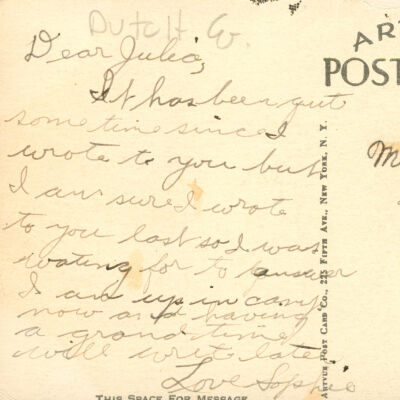 Dutch Co.
Dear Julia,
It has been quit
some time since I
wrote to you but
I am sure I wrote
to you last so I was
wating for to answer
I am up in camp
now and having
a grand time
will write late
Love Sophie
THIS SPACE FOR MESSAGE
ARTVUE POST CARD CO., 225 FIFTH AVE., NEW YORK, N. Y.
AR
POST
M